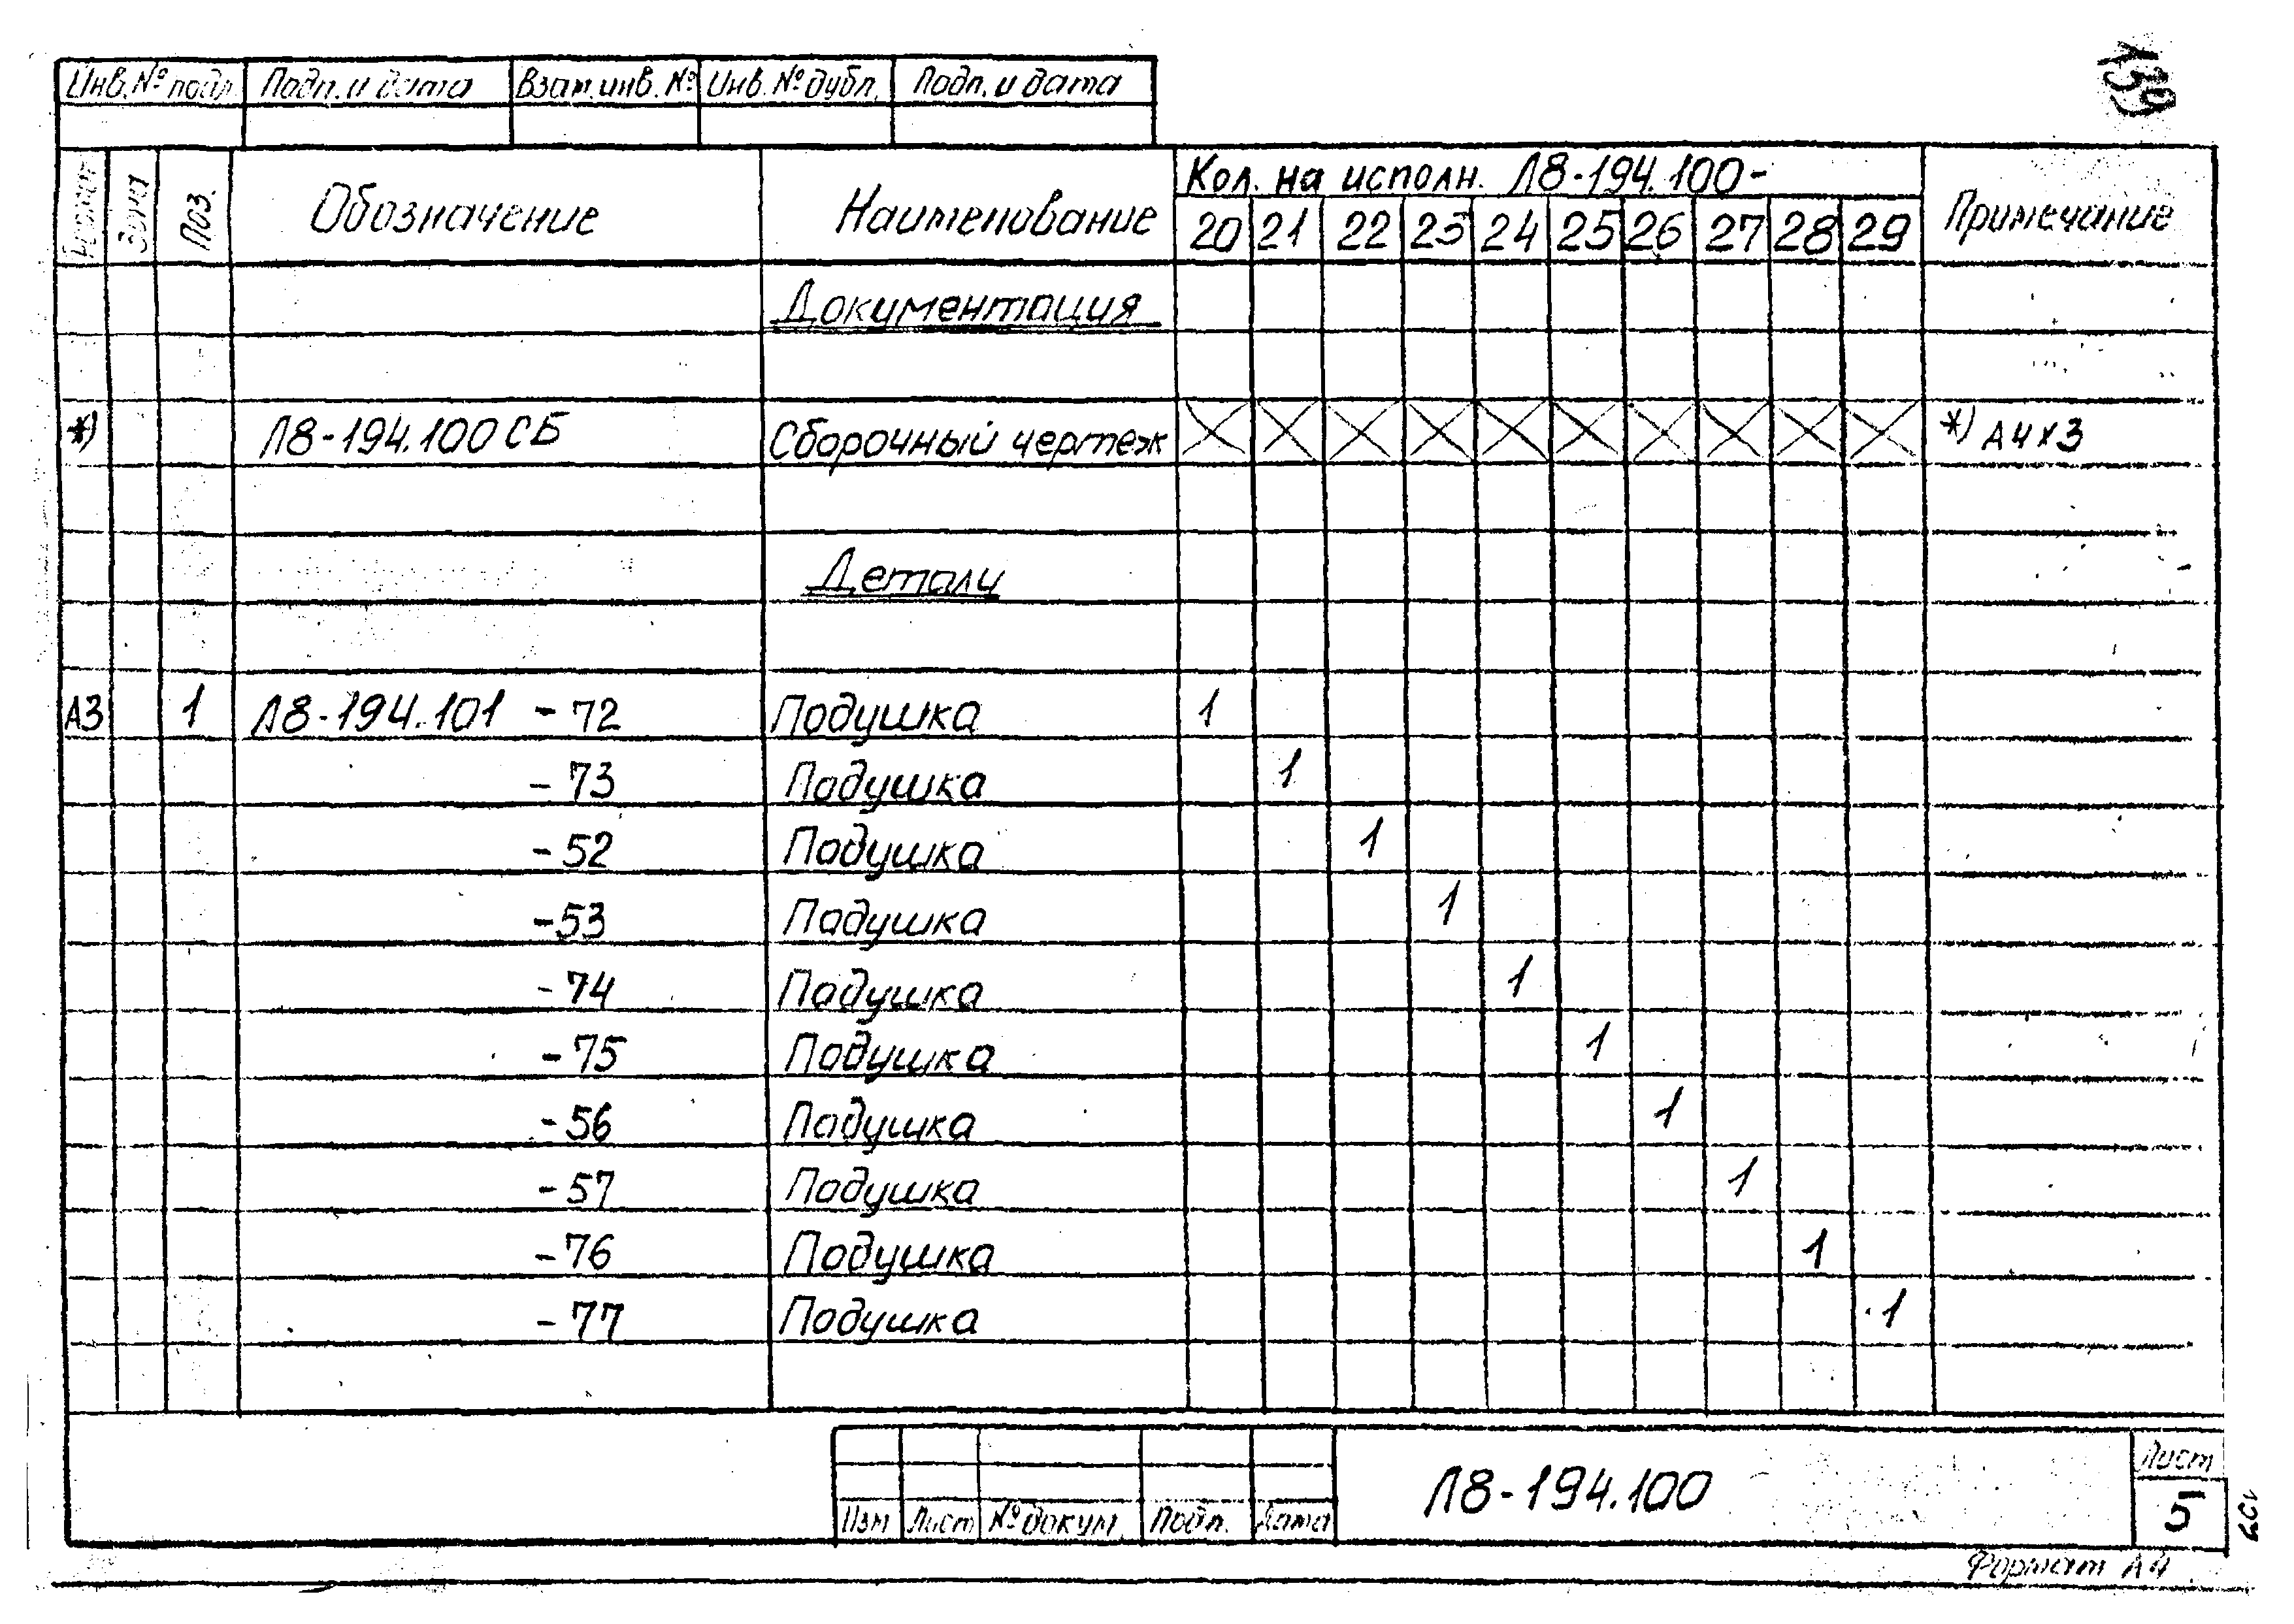 139
Инв. № подл. Подп. и дата Взам. инв. № Инв. № дубл. Подп. и дата
Формат Зона Поз. Обозначение Наименование Кол. на исполн. Л8-194.100- Примечание
20 21 22 23 24 25 26 27 28 29
Документация
*) Л8-194.100 СБ Сборочный чертеж *) А4х3
Детали
А3 1 Л8-194.101 -72 Подушка 1
-73 Подушка 1
-52 Подушка 1
-53 Подушка 1
-74 Подушка 1
-75 Подушка 1
-56 Подушка 1
-57 Подушка 1
-76 Подушка 1
-77 Подушка 1
Изм Лист № докум. Подп. Дата
Л8-194.100
Лист
5
Формат А4